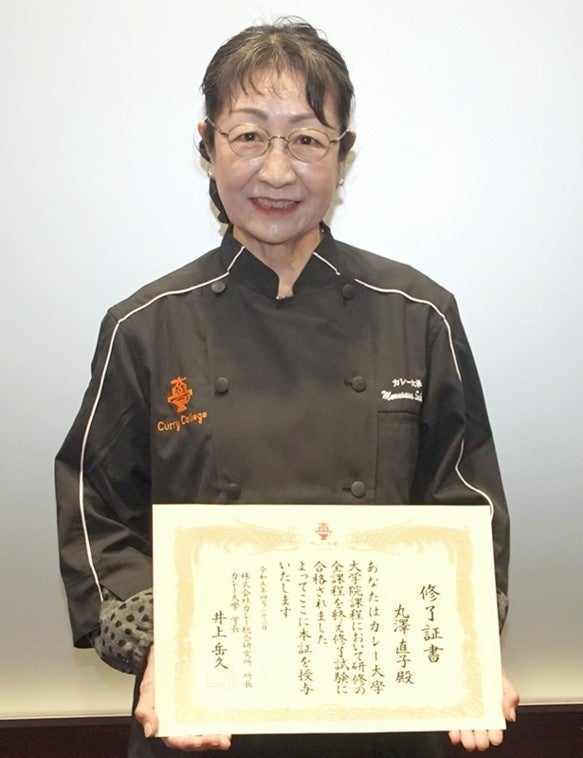 Curry College
カレー大學
修了証書
丸澤 直子殿
あなたはカレー大學
大学院課程において研修の
全課程を終え修了試験に
合格されました
よってここに本証を授与
いたします
令和五年四月二十二日
株式会社カレー総合研究所 所長
カレー大學 学長
井上 岳久